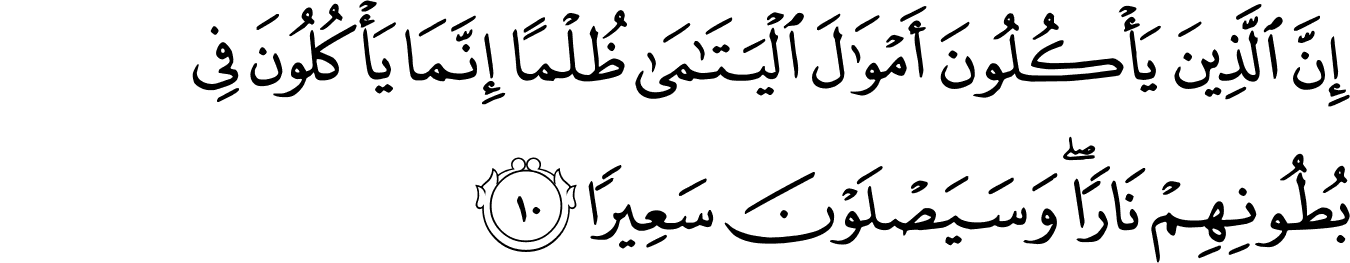 إِنَّ ٱلَّذِينَ يَأۡكُلُونَ أَمۡوَٰلَ ٱلۡيَتَٰمَىٰ ظُلۡمًا إِنَّمَا يَأۡكُلُونَ فِي
بُطُونِهِمۡ نَارٗاۖ وَسَيَصۡلَوۡنَ سَعِيرٗا ١٠